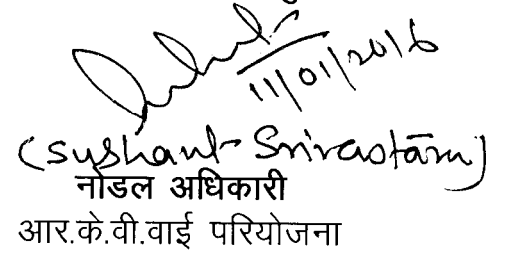 11/01/2016
(Sushant Srivastava)
नोडल अधिकारी
आर.के.वी.वाई परियोजना